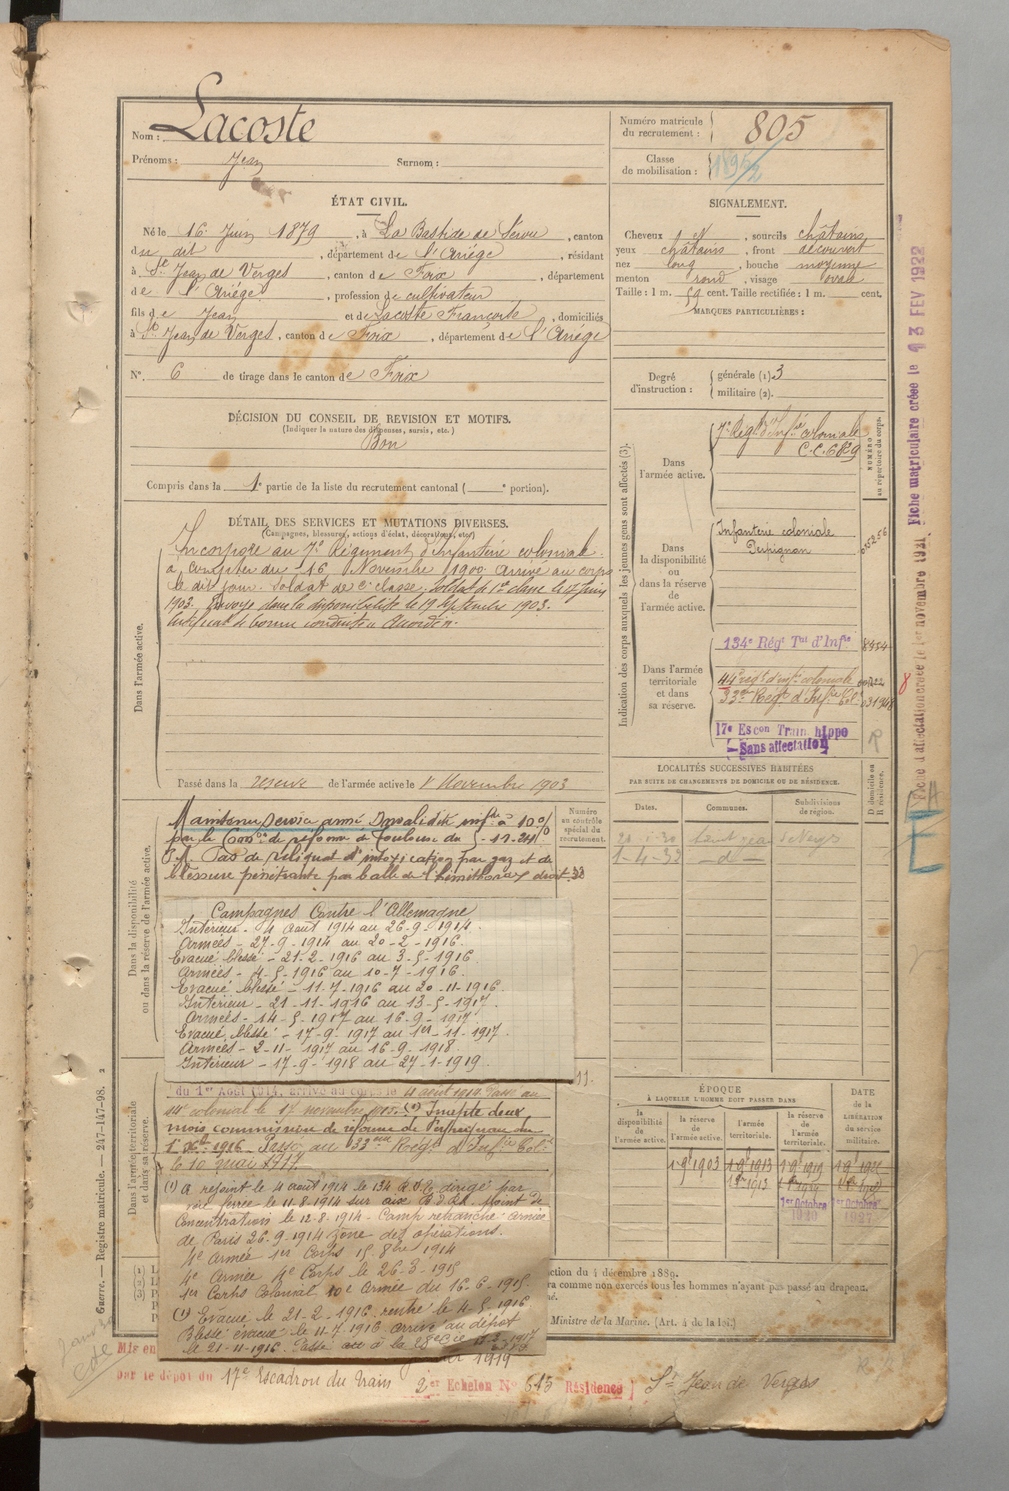 Nom : Lacoste
Prénoms : Jean Surnom :
Numéro matricule du recrutement : 805
Classe de mobilisation :
ÉTAT CIVIL.
Né le 16 Juin 1879, à La Bastide de Sérou, canton
du dit, département de l'Ariège, résidant
à St Jean de Verges, canton de Foix, département
de l'Ariège, profession de cultivateur
fils de Jean et de Lacoste Françoise, domiciliés
à St Jean de Verges, canton de Foix, département de l'Ariège
N° 6 de tirage dans le canton de Foix
SIGNALEMENT.
Cheveux, sourcils châtains
yeux châtains, front découvert
nez long, bouche moyenne
menton rond, visage ovale
Taille : 1 m. cent. Taille rectifiée : 1 m. cent.
MARQUES PARTICULIÈRES :
Degré d'instruction : générale (1) 3
militaire (2).
DÉCISION DU CONSEIL DE REVISION ET MOTIFS.
(Indiquer la nature des dispenses, sursis, etc.)
Bon
Compris dans la 1e partie de la liste du recrutement cantonal ( e portion).
DÉTAIL DES SERVICES ET MUTATIONS DIVERSES.
(Campagnes, blessures, actions d'éclat, décorations, etc.)
Dans l'armée active.
Incorporé au 7e Régiment d'Infanterie coloniale
à compter du 16 Novembre 1900. Arrivé au corps
le dit jour. Soldat de 2e classe, soldat de 1e classe le Juin
1903. Envoyé dans la disponibilité le 19 Septembre 1903.
Certificat de bonne conduite Accordé.
Passé dans la réserve de l'armée active le 1 Novembre 1903
Indication des corps auxquels les jeunes gens sont affectés (3).
NUMÉRO au répertoire du corps.
Dans l'armée active.
7e Régt d'Infie coloniale
C.C. 6829
Dans la disponibilité ou dans la réserve de l'armée active.
Infanterie coloniale
Perpignan
Dans l'armée territoriale et dans sa réserve.
134e Régt Tal d'Infie
44e régt d'infie coloniale
33me Régt d'Infie Cole
17e Escon Train hippo
Sans affectation
LOCALITÉS SUCCESSIVES HABITÉES
PAR SUITE DE CHANGEMENTS DE DOMICILE OU DE RÉSIDENCE.
Dates. Communes. Subdivisions de région. D domicile ou R résidence.
Saint Jean de Verges
1-4-32 - d -
Dans la disponibilité ou dans la réserve de l'armée active.
Numéro au contrôle spécial du recrutement.
Maintenu Service armé Invalidité infre à 10 %
par la Comon de réforme de Toulouse du
Pas de reliquat d'intoxication par gaz et de
blessure pénétrante par balle de l'hémithorax droit.
Campagnes Contre l'Allemagne
Intérieur - 4 août 1914 au 26-9-1914.
Armées - 27-9-1914 au 20-2-1916.
Evacué blessé - 21-2-1916 au 3-5-1916
Armées - 4-5-1916 au 10-7-1916.
Evacué blessé - 11-7-1916 au 20-11-1916.
Intérieur - 21-11-1916 au 13-5-1917.
Armées - 14-5-1917 au 16-9-1917.
Evacué blessé - 17-9-1917 au 1er-11-1917.
Armées - 2-11-1917 au 16-9-1918.
Intérieur - 17-9-1918 au 27-1-1919.
Dans l'armée territoriale et dans sa réserve.
du 1er Août 1914, arrivé au corps le 4 août 1914. Passé au
44e colonial le 17 novembre 1915. Inepte deux
mois commission de réforme de Perpignan du
1916 Passé au 33me Régt d'Infie Cole
le 10 mai 1917.
(1) A rejoint le 4 août 1914 le 134 dirigé par
voie ferrée le 11-8-1914 sur Point de
Concentration le 12-8-1914 - Camp retranché armée
de Paris 26-9-1914 zone des opérations.
4e Armée 1er Corps 15-8bre 1914
4e Armée 4e Corps le 26-3-1915
1er Corps Colonial 10e Armée du 16-6-1915.
(1) Evacué le 21-2-1916 rentré le 4-5-1916
Blessé évacué le 11-7-1916 arrivé au dépôt
le 21-11-1916. Passé à la 28e Cie
ÉPOQUE
À LAQUELLE L'HOMME DOIT PASSER DANS
la disponibilité de l'armée active. la réserve de l'armée active. l'armée territoriale. la réserve de l'armée territoriale.
DATE de la LIBÉRATION du service militaire.
1 9bre 1903 1 9bre 1913
1er Octobre 1920
1er Octobre 1927
ction du 4 décembre 1889.
ra comme non exercés tous les hommes n'ayant pas passé au drapeau.
Ministre de la Marine. (Art. 4 de la loi.)
Guerre. — Registre matricule. — 247-147-98. 2
Mis en
1919
par le dépôt du 17e Escadron du Train 2er Echelon N° 643 Résidence St Jean de Verges
Fiche d'affectation créée le 1er novembre 1921 Fiche matriculaire créée le 13 FEV 1922